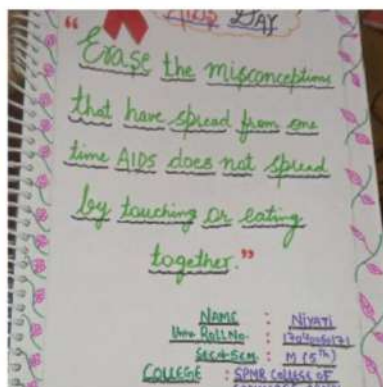 AIDS DAY
"Erase the misconceptions
that have spread from one
time AIDS does not spread
by touching or eating
together."
NAME : NIYATI
Roll No. :
SEC & SEM : M (5th)
COLLEGE : SPMR COLLEGE OF